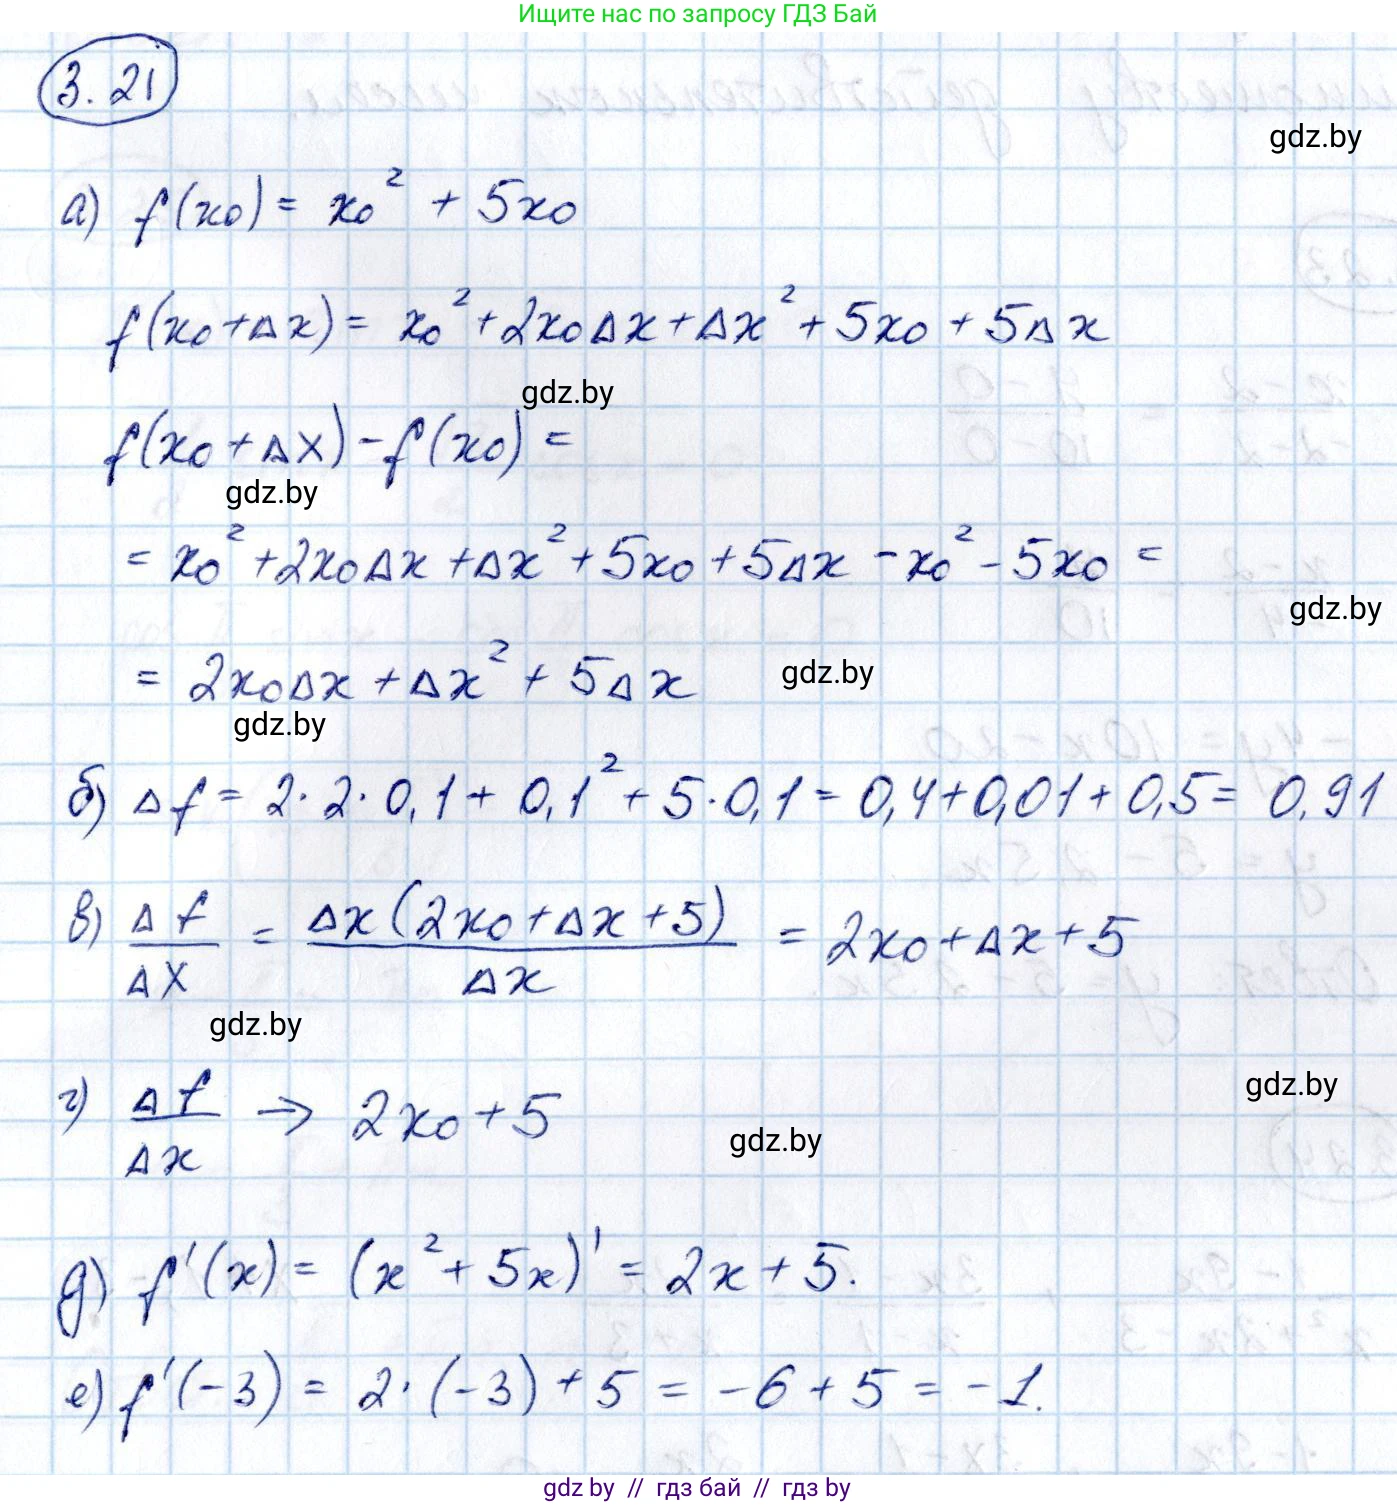 Ищите нас по запросу ГДЗ Бай
3.21
gdz.by
а) f(x₀) = x₀² + 5x₀
f(x₀+Δx) = x₀² + 2x₀Δx + Δx² + 5x₀ + 5Δx
gdz.by
f(x₀ + Δx) - f(x₀) =
gdz.by
= x₀² + 2x₀Δx + Δx² + 5x₀ + 5Δx - x₀² - 5x₀ =
gdz.by
= 2x₀Δx + Δx² + 5Δx
gdz.by
gdz.by
б) Δf = 2·2·0,1 + 0,1² + 5·0,1 = 0,4+0,01+0,5 = 0,91
в) Δf/Δx = Δx(2x₀+Δx+5)/Δx = 2x₀+Δx+5
gdz.by
г) Δf/Δx → 2x₀+5
gdz.by
gdz.by
д) f'(x) = (x² + 5x)' = 2x + 5.
е) f'(-3) = 2·(-3) + 5 = -6 + 5 = -1.
gdz.by // гдз бай // гдз by